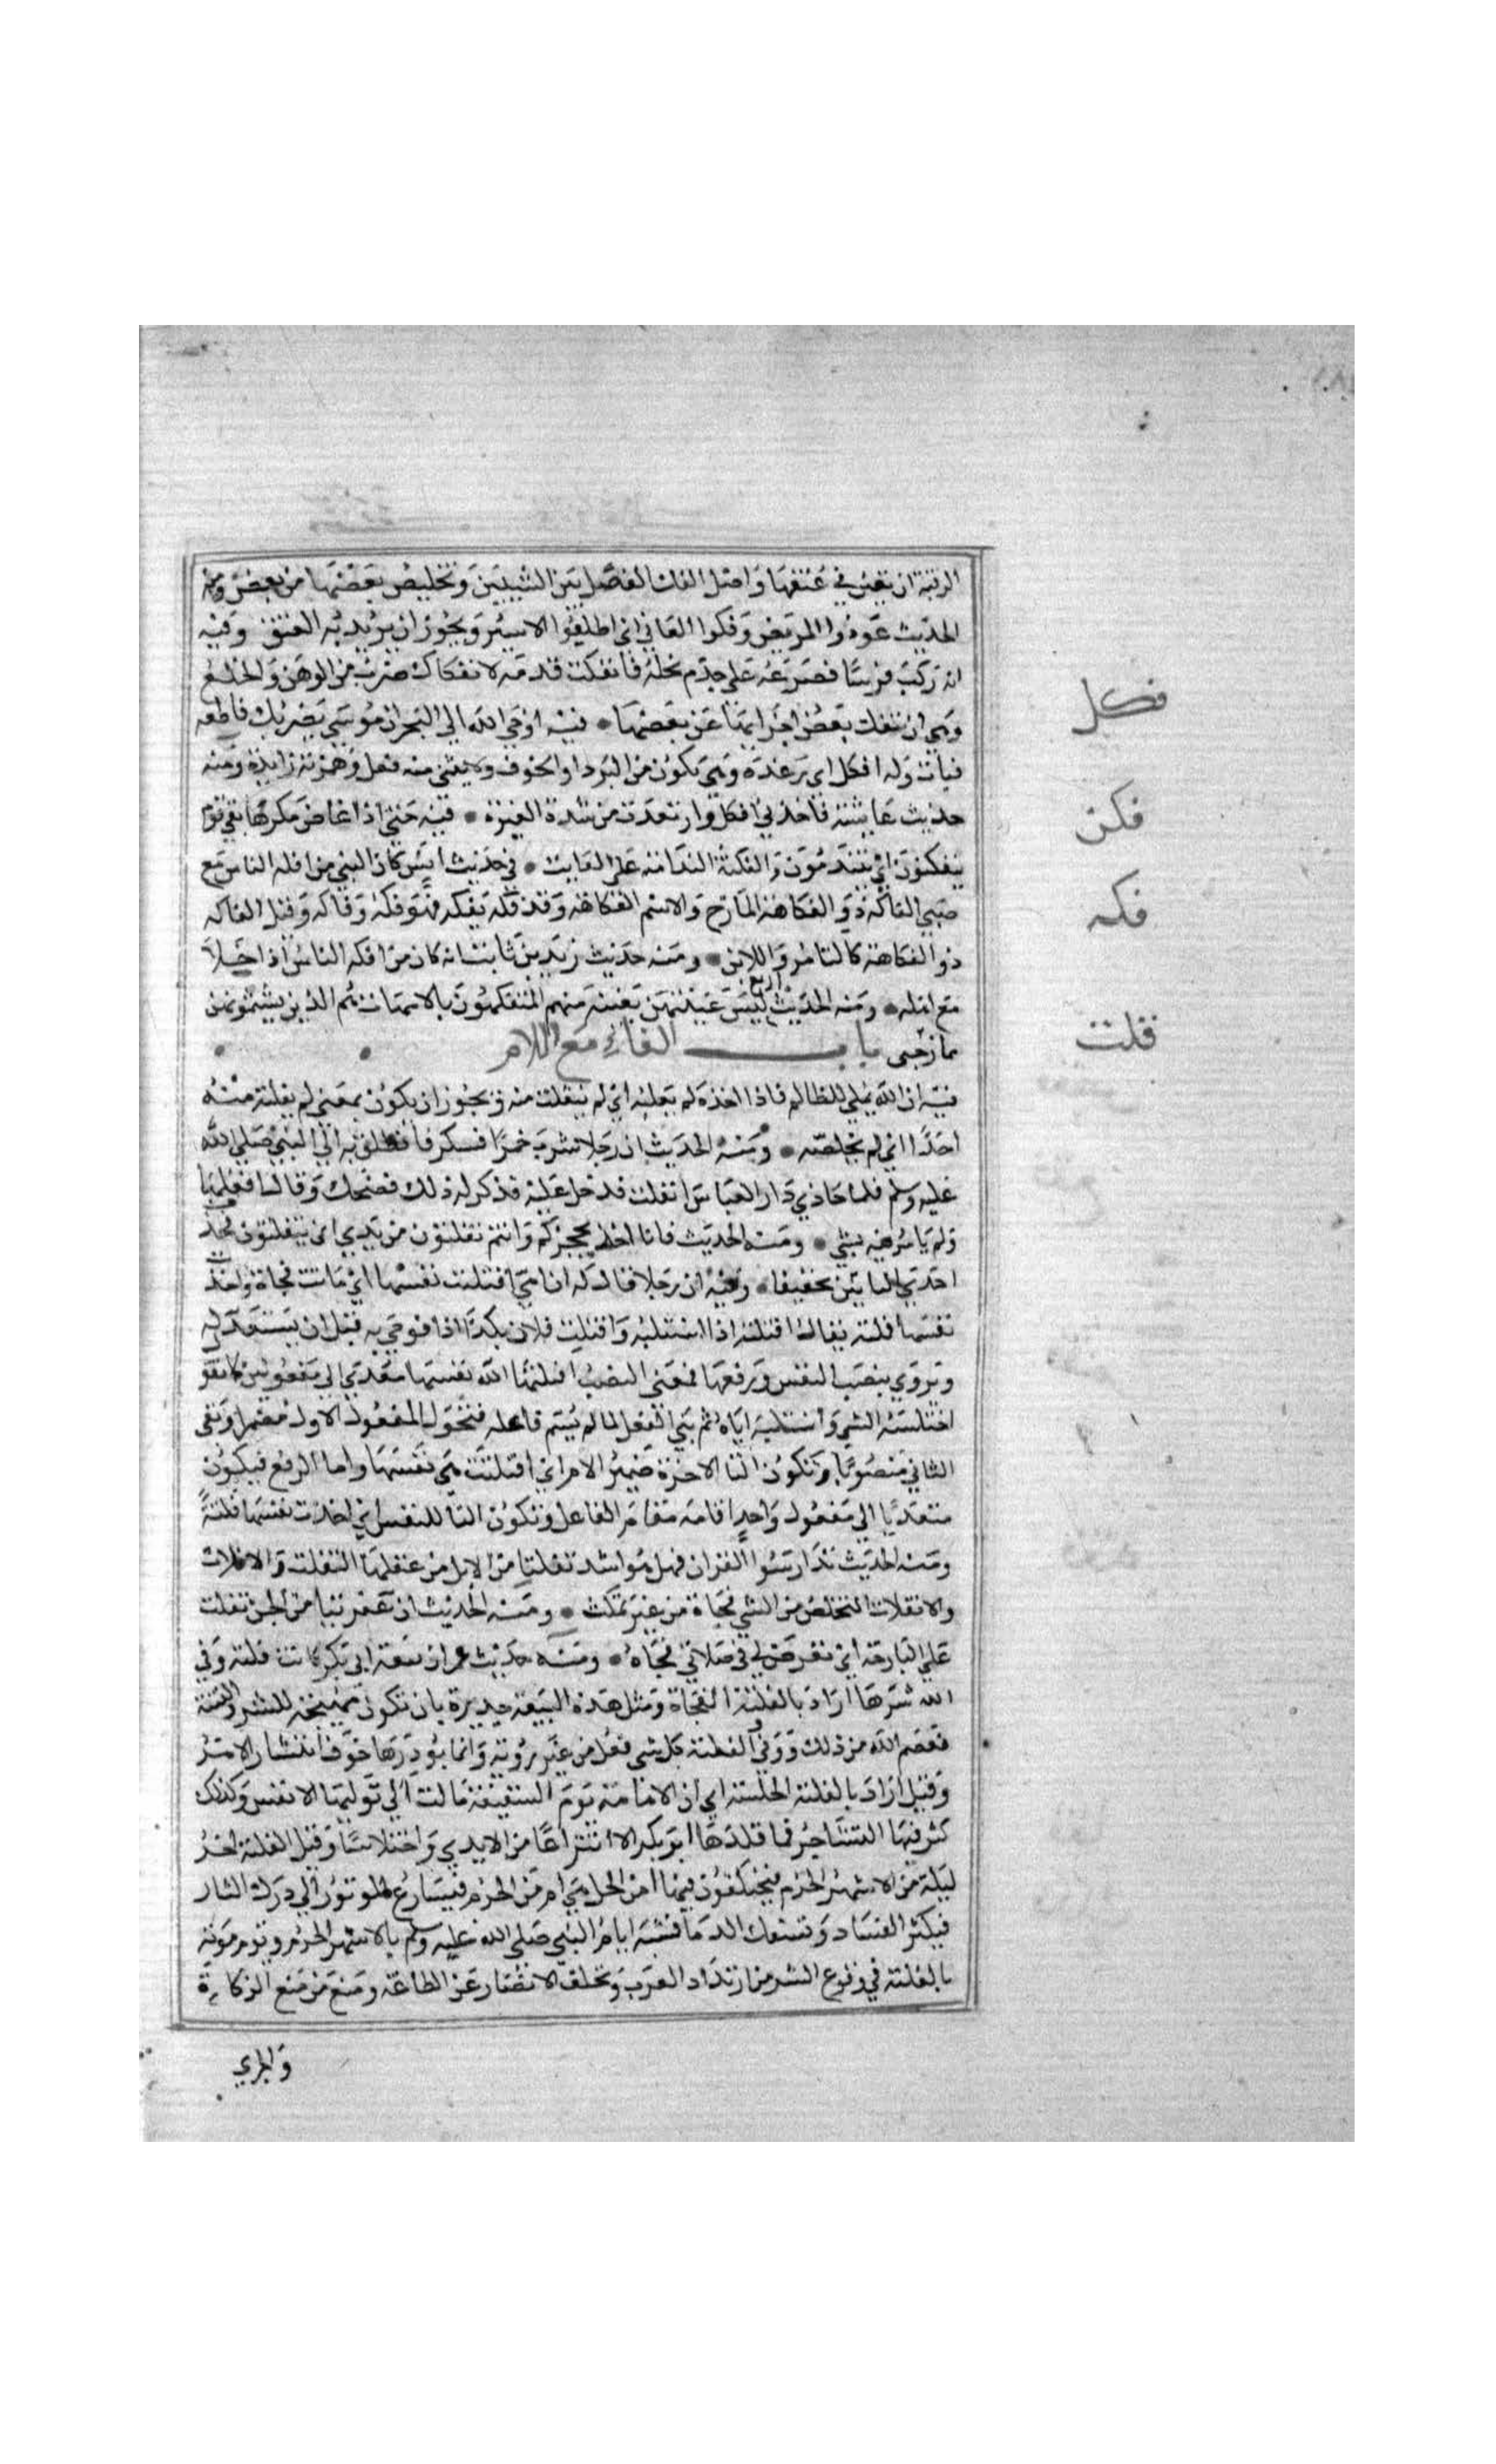 الرقبة ان يعين في عتقها واصل الفك الفصل بين الشيئين وتخليص بعضهما من بعض ومنه
الحديث عودوا المريض وفكوا العاني اي اطلقوا الاسير ويجوز ان يريد به العتق وفيه
انه ركب فرسا فصرعه على جذم نخلة فانفكت قدمه لانفكاك ضرب من الوهن والخلع
فكل
وهي ان تنفك بعض اجزايها عن بعضها • فيه اوحي الله الي البحر ان موسي يضربك فاطعه
فبات وله افكل اي رعدة وهي تكون من البرد او الخوف ولا يبني منه فعل وهمزته زايدة ومنه
فكن
حديث عايشة فاخذني افكل وارتعدت من شدة الغيرة • فيه حتي اذا غاض بقي قوم
يتفكنون اي يتندمون والفكنة الندامة على الفايت • في حديث انس كان النبي من افكه الناس مع
فكه
صبي الفاكه ذو الفكاهة المازح والاسم الفكاهة وقد فكه يفكه فهو فكه وفاكه وقيل الفاكه
ذو الفكاهة كالتامر واللابن • ومنه حديث زيد بن ثابت انه كان من افكه الناس اذا خلا
مع اهله • ومنه الحديث اربع ليس غيبتهن بغيبة منهم المتفكهون بالامهات هم الذين يشتمونهن
ممازحين باب الفاء مع اللام
فلت
فيه ان الله يملي للظالم فاذا اخذه لم يفلته اي لم ينفلت منه ويجوز ان يكون بمعني لم يفلته منه
احد اي لم يخلصه • ومنه الحديث ان رجلا شرب خمرا فسكر فانطلق به الي النبي صلي الله
عليه وسلم فلما حاذي دار العباس انفلت فدخل عليه فذكر له ذلك فضحك وقال افعلها
ولم يامر فيه بشي • ومنه الحديث فانا اخذ بحجزكم وانتم تفلتون من يدي اي تتفلتون فحذف
احدي التايين تخفيفا • وفيه ان رجلا قال له ان امي افتلتت نفسها اي ماتت فجاة واخذت
نفسها فلتة يقال افتلته اذا استلبه وافتلت فلان بكذا اذا فوجي به قبل ان يستعد له
ويروي بنصب النفس ورفعها فمعني النصب افتلتها الله نفسها معدي الي مفعولين كما تقول
اختلسه الشي واستلبه اياه ثم بني الفعل لما لم يسم فاعله فتحول المفعول الاول مضمرا وبقي
الثاني منصوبا وتكون التا الاخرة ضمير الام اي افتلتت هي نفسها واما الرفع فيكون
متعديا الي مفعول واحد اقامه مقام الفاعل وتكون التا للنفس اي اخذت نفسها فلتة
ومنه الحديث تدارسوا القران فهو اشد تفلتا من الابل من عقلها التفلت والافلات
والانفلات التخلص من الشي فجاة من غير تمكث • ومنه الحديث ان عفريتا من الجن تفلت
علي البارحة اي تعرض لي في صلاتي فجاة • ومنه حديث عمر ان بيعة ابي بكر كانت فلتة وقي
الله شرها اراد بالفلتة الفجاة ومثل هذه البيعة جديرة بان تكون مهيجة للشر والفتنة
فعصم الله من ذلك ووقي والفلتة كل شي فعل من غير روية وانما بودر بها خوف انتشار الامر
وقيل اراد بالفلتة الخلسة اي ان الامامة يوم السقيفة مالت الي توليها الانفس وكذلك
كثر فيها التشاجر فما قلدها ابو بكر الا انتزاعا من الايدي واختلاسا وقيل الفلتة اخر
ليلة من الاشهر الحرم فيختلفون فيها امن الحل هي ام من الحرم فيسارع الموتور الي درك الثار
فيكثر الفساد وتسفك الدما فشبه ايام النبي صلي الله عليه وسلم بالاشهر الحرم ويوم موته
بالفلتة في وقوع الشر من ارتداد العرب وتخلف الانصار عن الطاعة ومنع من منع الزكاة
والجري